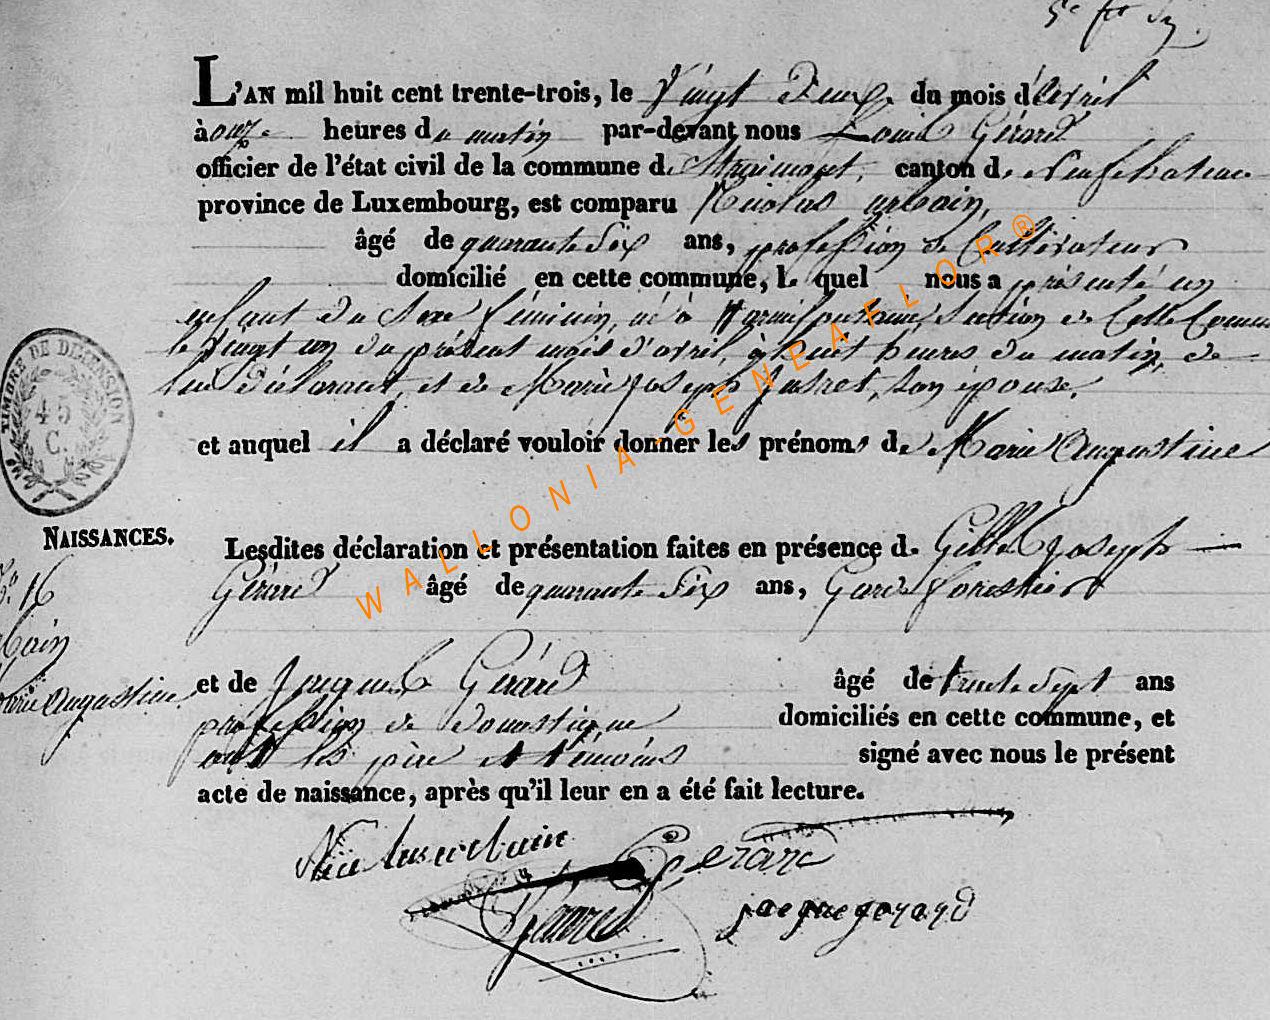 L'AN mil huit cent trente-trois, le Vingt Deux du mois d'avril
à onze heures du matin par-devant nous Louis Gérard
officier de l'état civil de la commune de Straimont, canton de Neufchateau
province de Luxembourg, est comparu Nicolas urbain,
âgé de quarante Six ans, profession de Cultivateur
domicilié en cette commune, le quel nous a présenté un
enfant du Sexe féminin, né à Harmifontaine, Section de Cette Commune
le vingt un du présent mois d'avril, à huit heures du matin, de
lui déclarant, et de Marie Joseph Jusret, son épouse,
et auquel il a déclaré vouloir donner les prénoms de Marie Augustine
TIMBRE DE DIMENSION
45
C.
NAISSANCES.
Lesdites déclaration et présentation faites en présence de Gilles Joseph
N.º 16
Gérard âgé de quarante Six ans, Garde forestier
bain
Marie Augustine
et de Jacques Gérard âgé de trente Sept ans
profession de domestique domiciliés en cette commune, et
ont les père et témoins signé avec nous le présent
acte de naissance, après qu'il leur en a été fait lecture.
Nicolas urbain
Gerard
Gerard
jacque gerard
WALLONIA-GENEAFLOR®